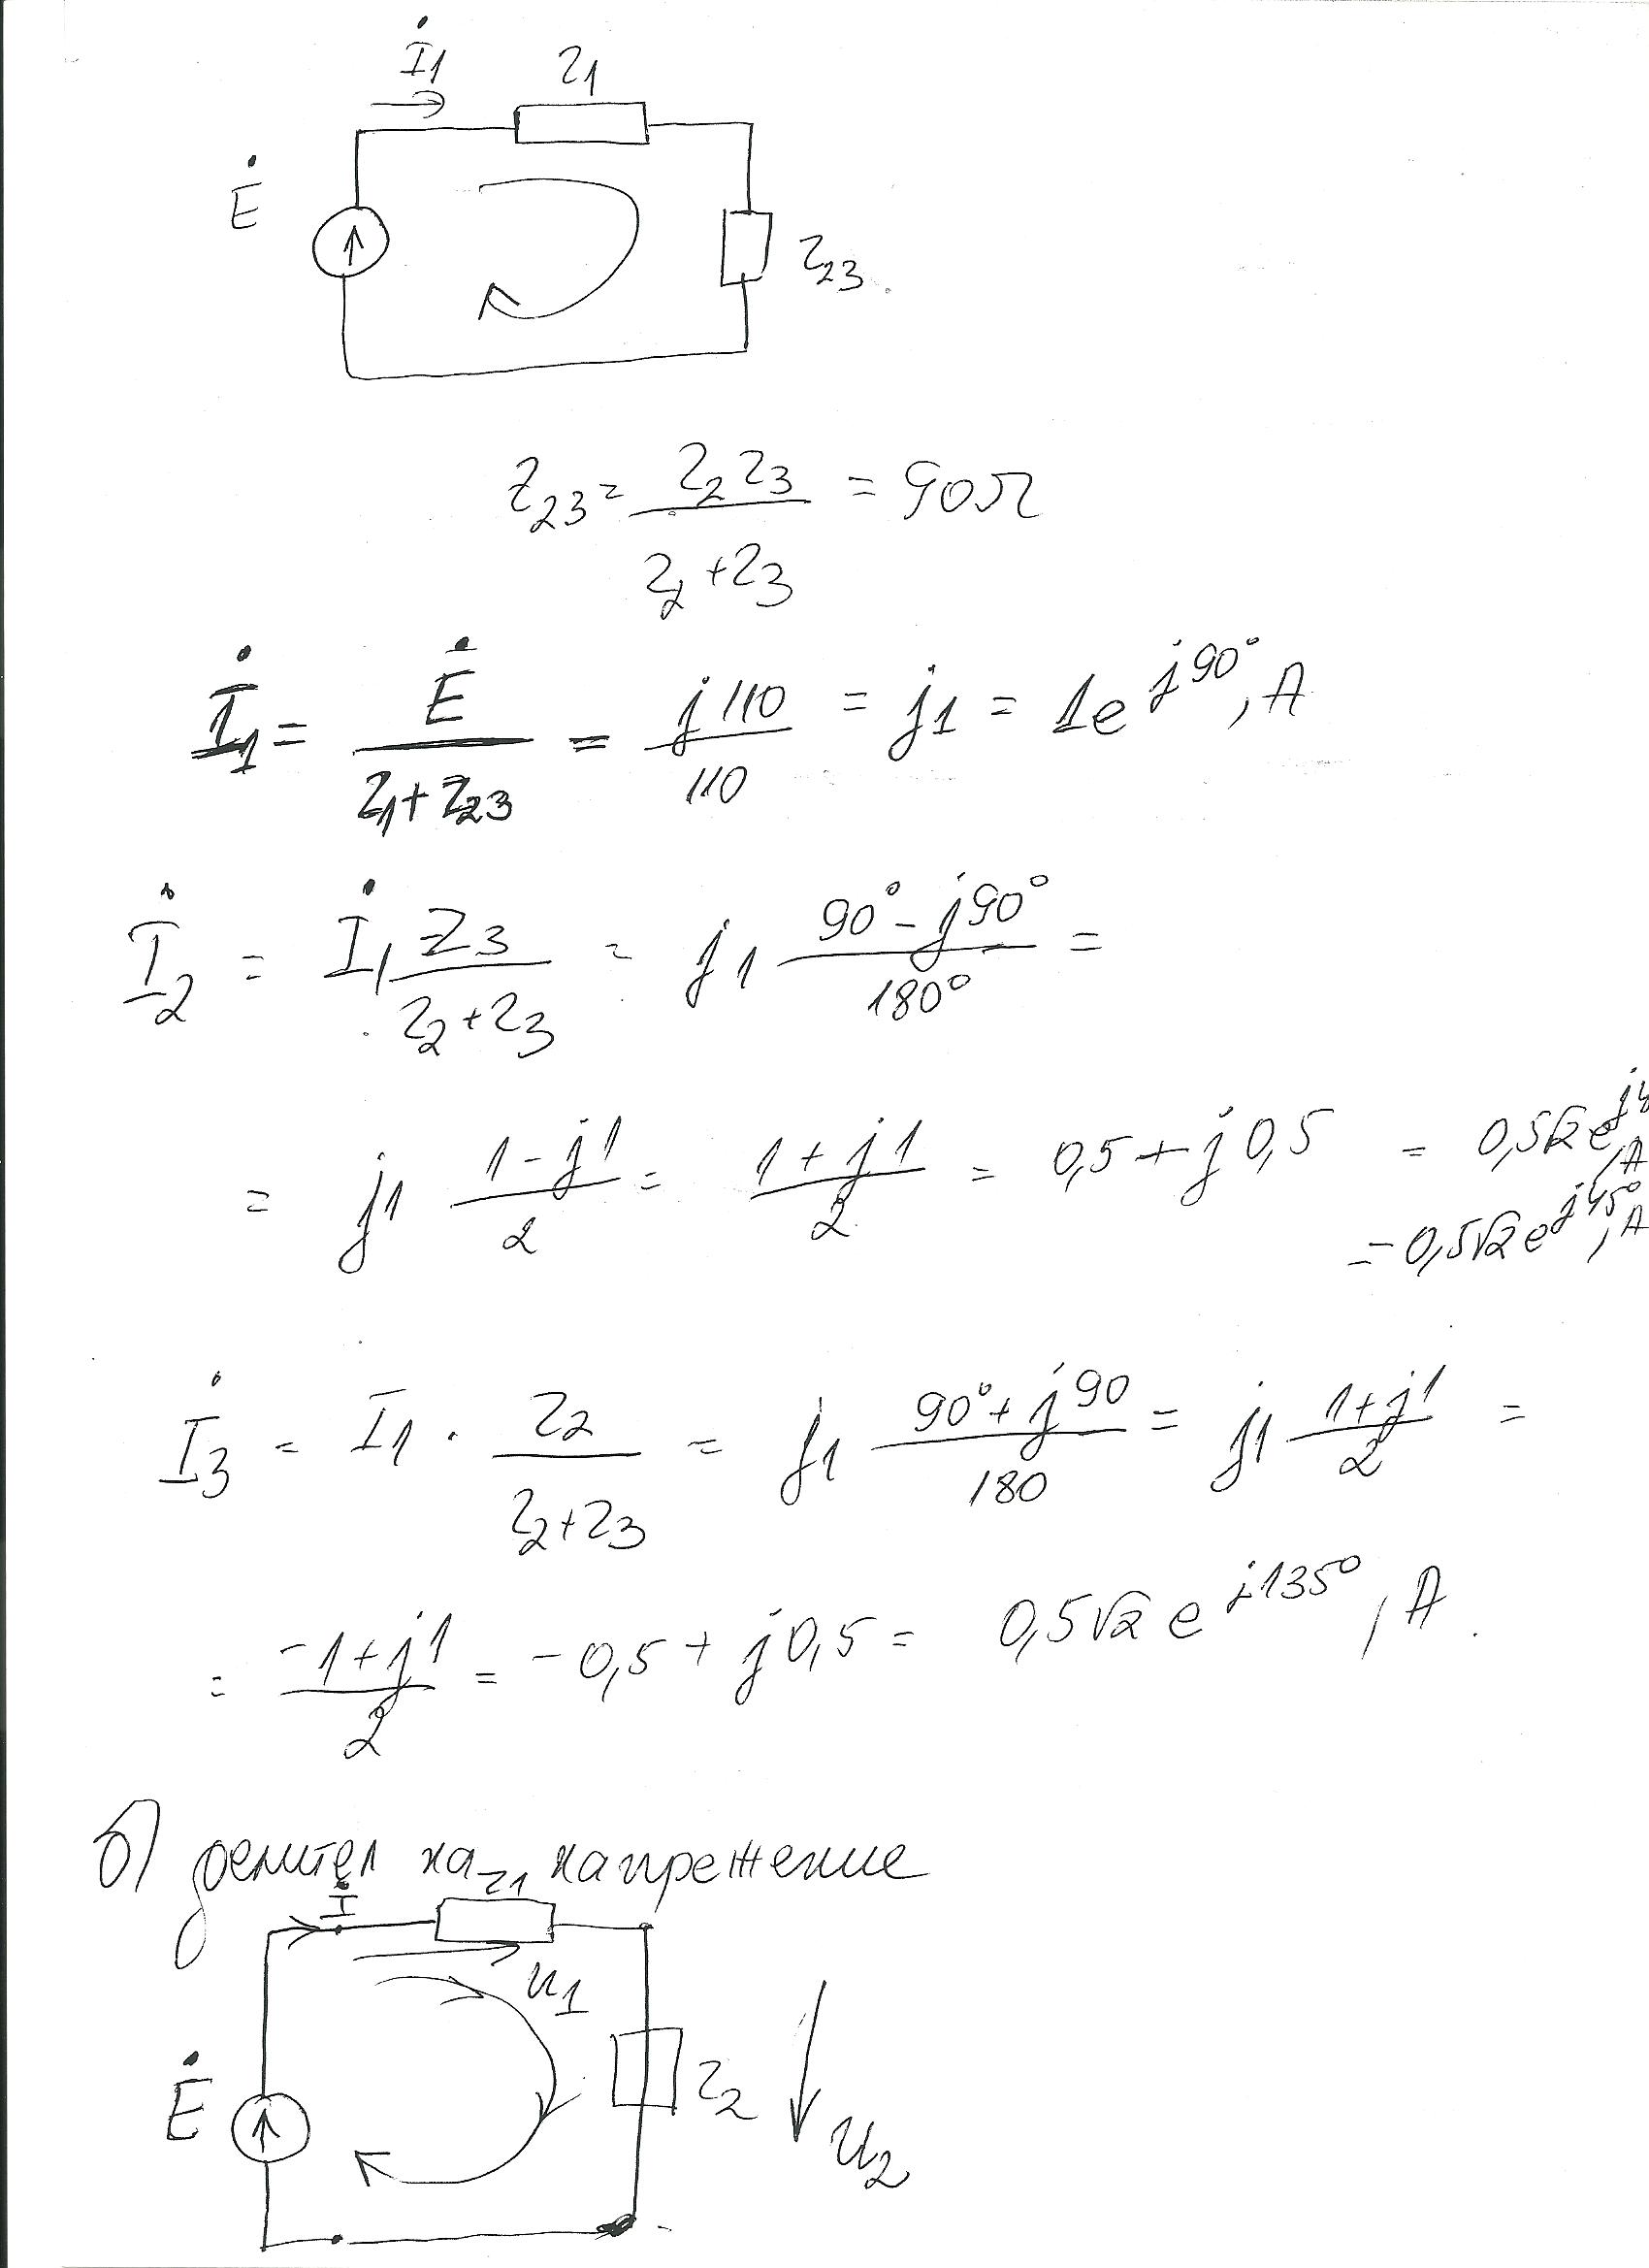 İ1 Z1
Ė
Z23
Z23 = Z2 Z3 / Z2 + Z3 = 90Ω
İ1 = Ė / Z1 + Z23 = j110 / 110 = j1 = 1e^j90°, A
İ2 = İ1 Z3 / Z2 + Z3 = j1 90° - j90° / 180° =
= j1 1 - j1 / 2 = 1 + j1 / 2 = 0,5 + j0,5 = 0,5√2 e^j4, A
= 0,5√2 e^j45°, A
İ3 = I1 · Z2 / Z2 + Z3 = j1 90° + j90 / 180 = j1 1 + j1 / 2 =
= -1 + j1 / 2 = -0,5 + j0,5 = 0,5√2 e^j135°, A.
б) делител на напрежение
İ Z1
U1
Ė
Z2
U2